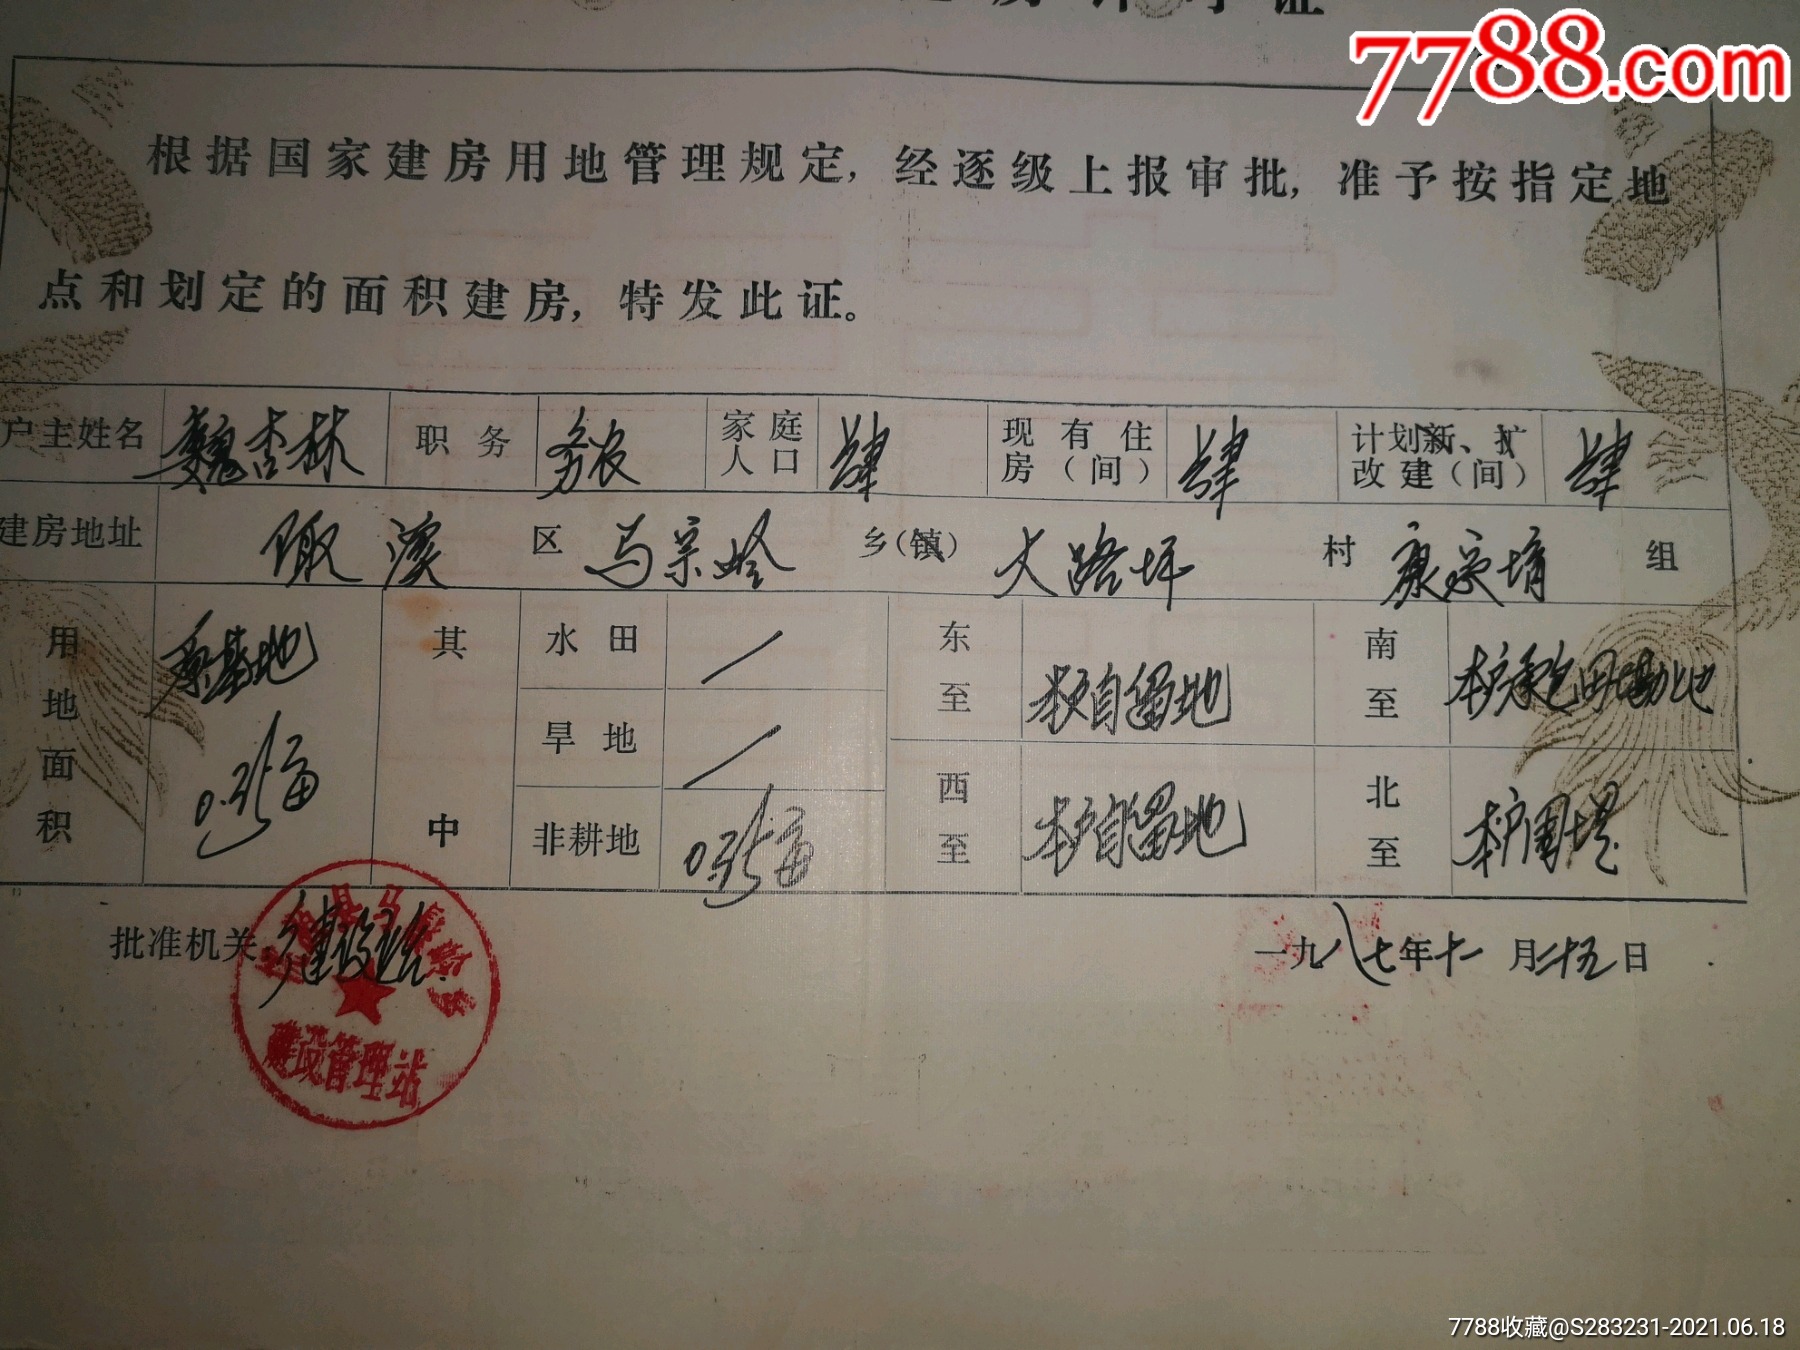 房许可证
7788.com
根据国家建房用地管理规定，经逐级上报审批，准予按指定地
点和划定的面积建房，特发此证。
户主姓名 魏杏林 职务 务农 家庭人口 肆 现有住房（间） 肆 计划新、扩改建（间） 肆
建房地址 陬溪 区 马宗岭 乡（镇） 大路坪 村 组
用地面积 原基地 其中 水田 / 东至 本户自留地 南至 本户承包田
旱地 /
非耕地 西至 本户自留地 北至 本户
批准机关
建设管理站
一九八七年十一月二十五日
7788收藏@S283231-2021.06.18